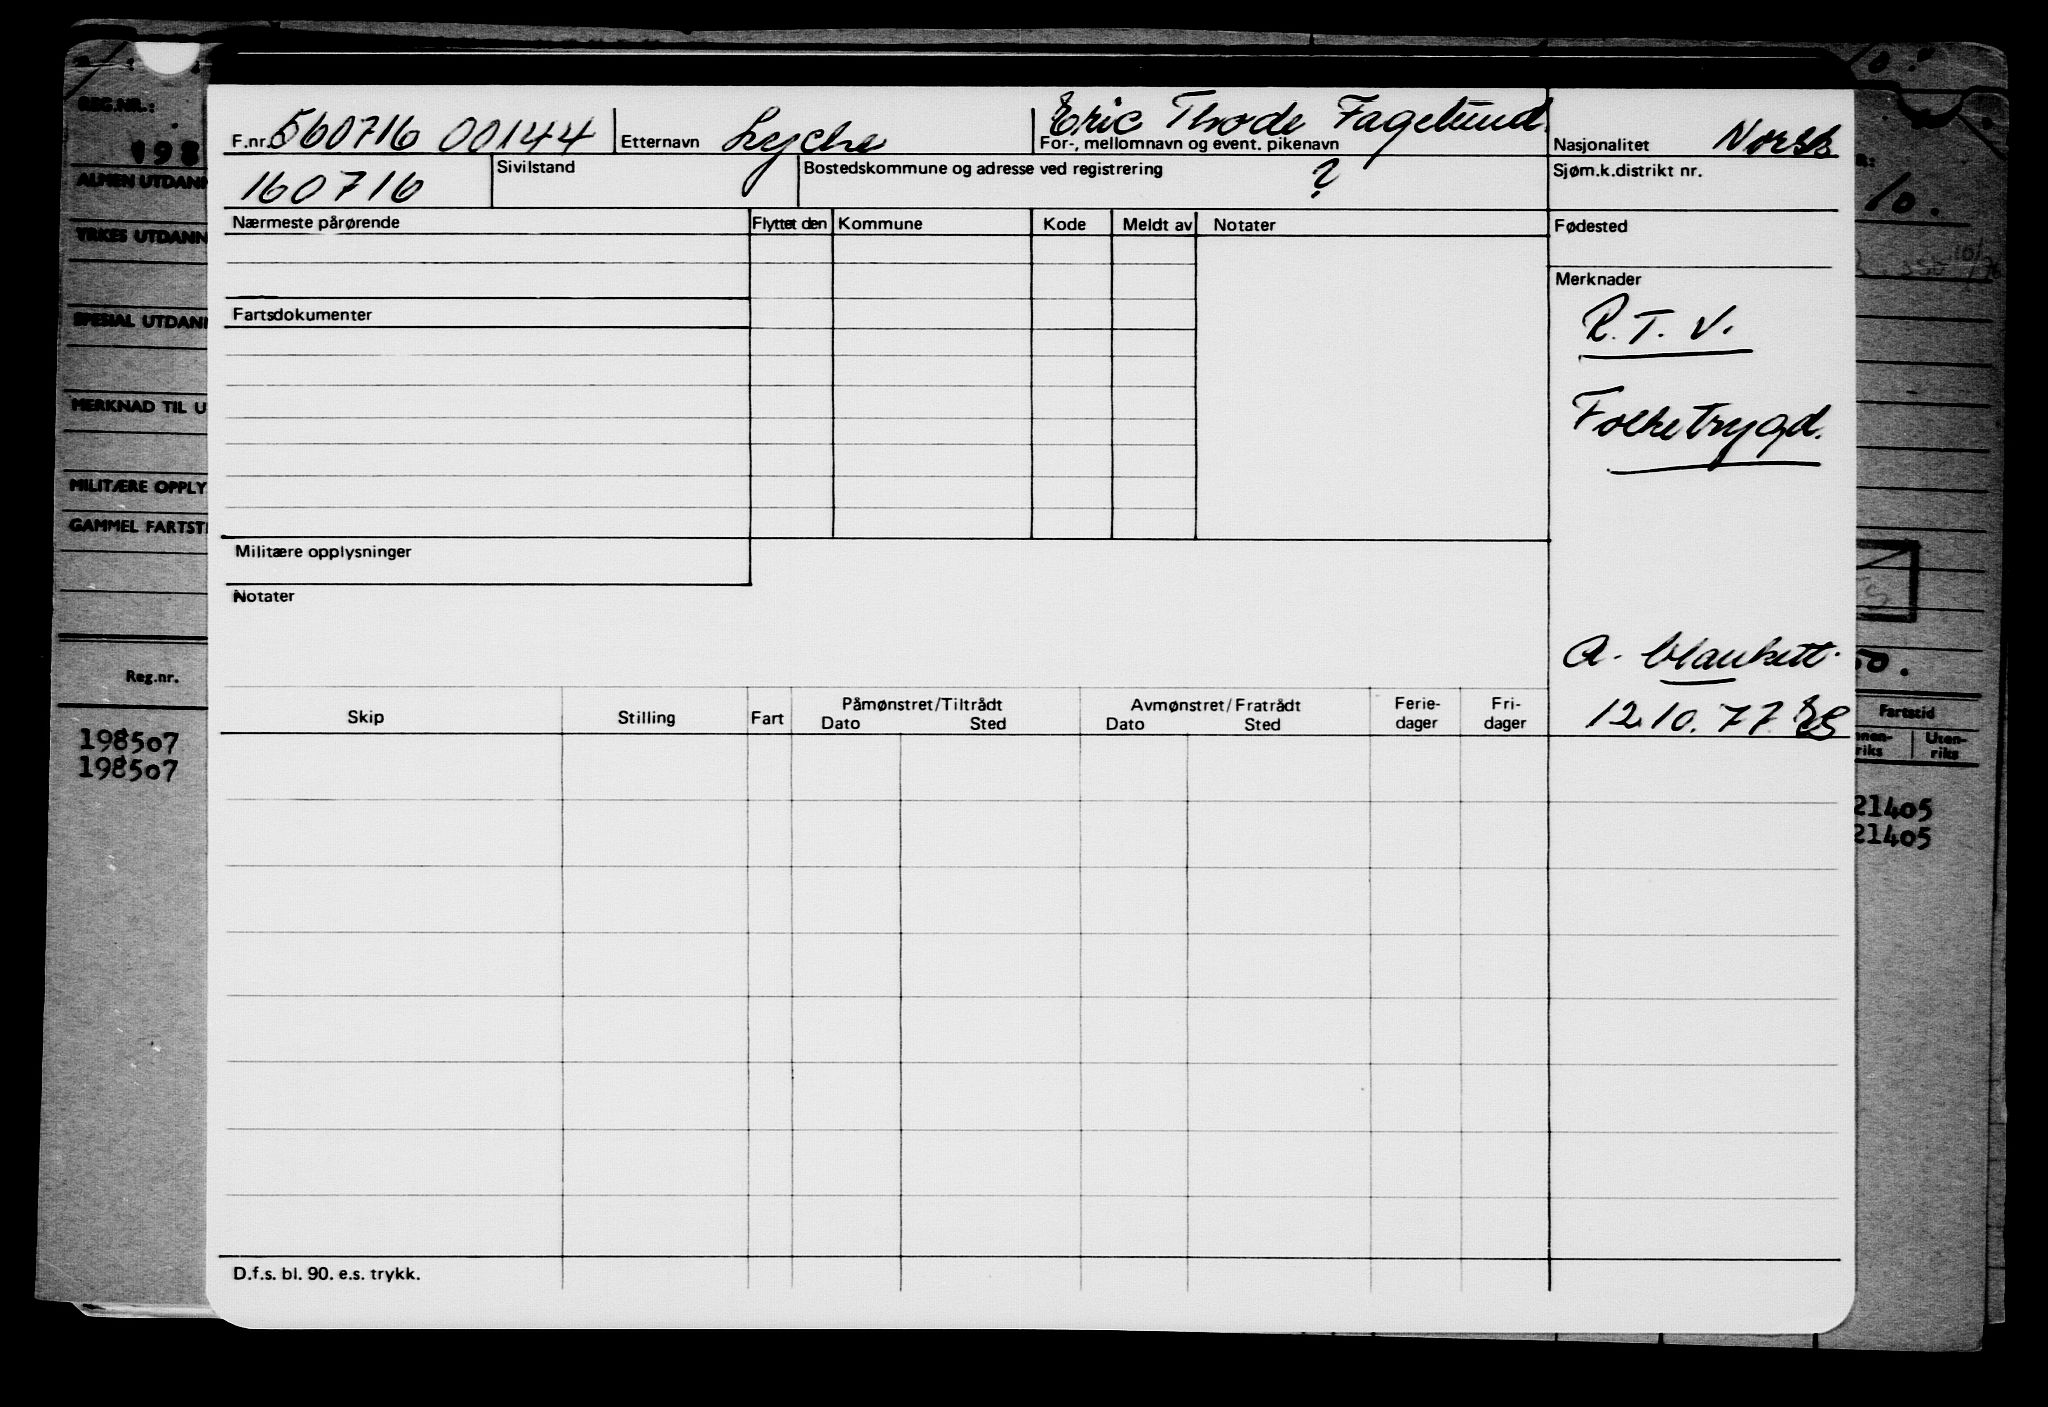 F.nr. 560716 00144 Etternavn Lyche For-, mellomnavn og event. pikenavn Eric Thode Fagelund. Nasjonalitet Norsk
160716 Sivilstand Bostedskommune og adresse ved registrering ? Sjøm.k.distrikt nr.
Nærmeste pårørende Flyttet den Kommune Kode Meldt av Notater Fødested
Merknader
R.T.V.
Fartsdokumenter
Folketrygd.
Militære opplysninger
Notater
A. blankett.
12.10.77 ES
Skip Stilling Fart Påmønstret/Tiltrådt Dato Sted Avmønstret/Fratrådt Dato Sted Ferie-dager Fri-dager
D.f.s. bl. 90. e.s. trykk.
REG.NR.:
198
ALMEN UTDANN
YRKES UTDANN
SPESIAL UTDANN
MERKNAD TIL U
MILITÆRE OPPLY
GAMMEL FARTSTI
Reg.nr.
198507
198507
10.
50.
Fartstid
nnen-riks Uten-riks
21405
21405